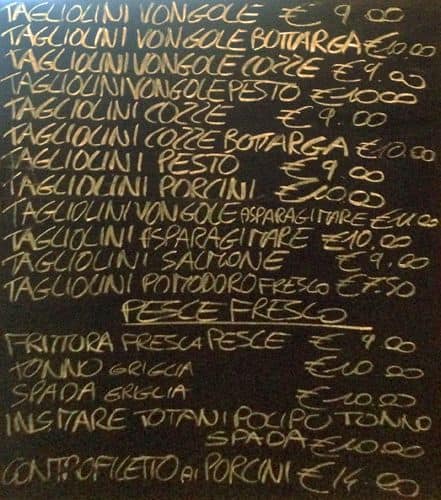 TAGLIOLINI VONGOLE €9.00
TAGLIOLINI VONGOLE BOTTARGA €10.00
TAGLIOLINI VONGOLE COZZE €9.00
TAGLIOLINI VONGOLE PESTO €10.00
TAGLIOLINI COZZE €9.00
TAGLIOLINI COZZE BOTTARGA €10.00
TAGLIOLINI PESTO €9.00
TAGLIOLINI PORCINI €10.00
TAGLIOLINI VONGOLE ASPARAGI MARE €11.00
TAGLIOLINI ASPARAGI MARE €10.00
TAGLIOLINI SALMONE €9.00
TAGLIOLINI POMODORO FRESCO €7.50
PESCE FRESCO
FRITTORA FRESCA PESCE €9.00
TONNO GRIGLIA €10.00
SPADA GRIGLIA €10.00
INS MARE TOTANI POLIPO TONNO
SPADA €10.00
CONTROFILETTO AI PORCINI €14.00